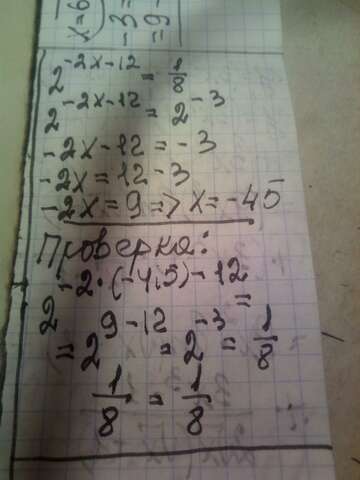 x=6
-3=
=9-
2^{-2x-12} = 1/8
2^{-2x-12} = 2^{-3}
-2x-12=-3
-2x=12-3
-2x=9=> x=-45
Проверка:
2^{-2·(-4,5)-12} =
=2^{9-12} = 2^{-3} = 1/8
1/8 = 1/8